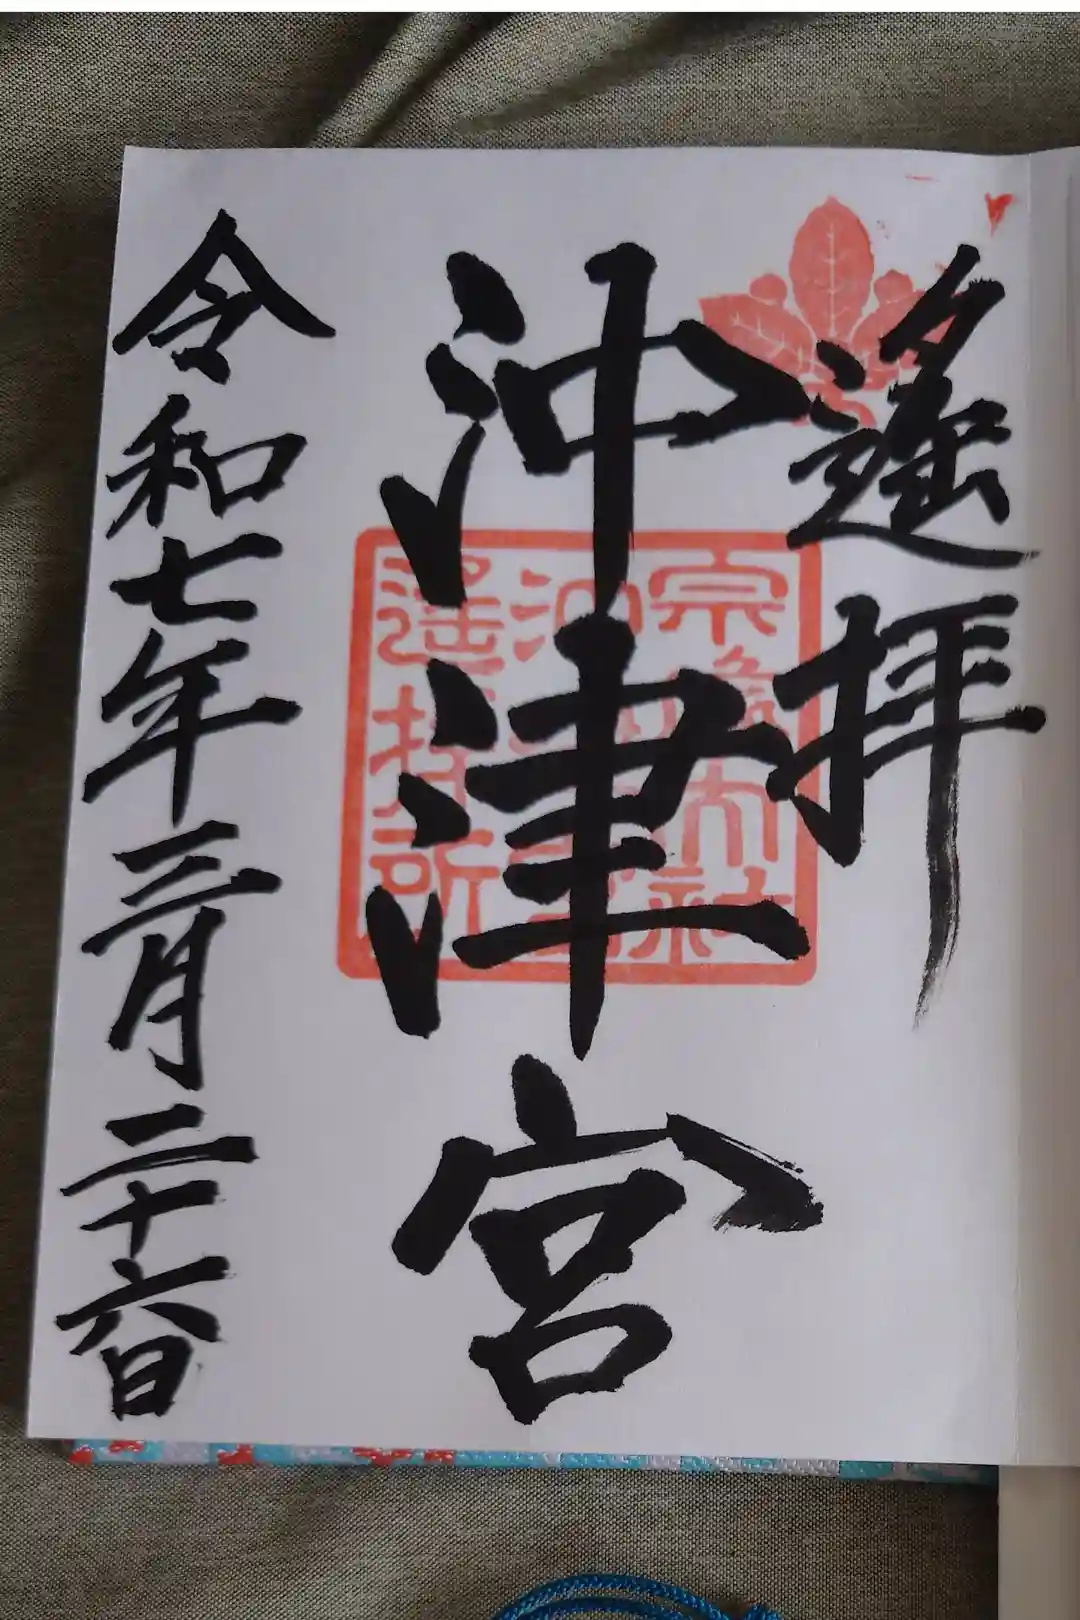 遙拝
沖津宮
令和七年三月二十六日
宗像大社
沖津宮
遙拝所